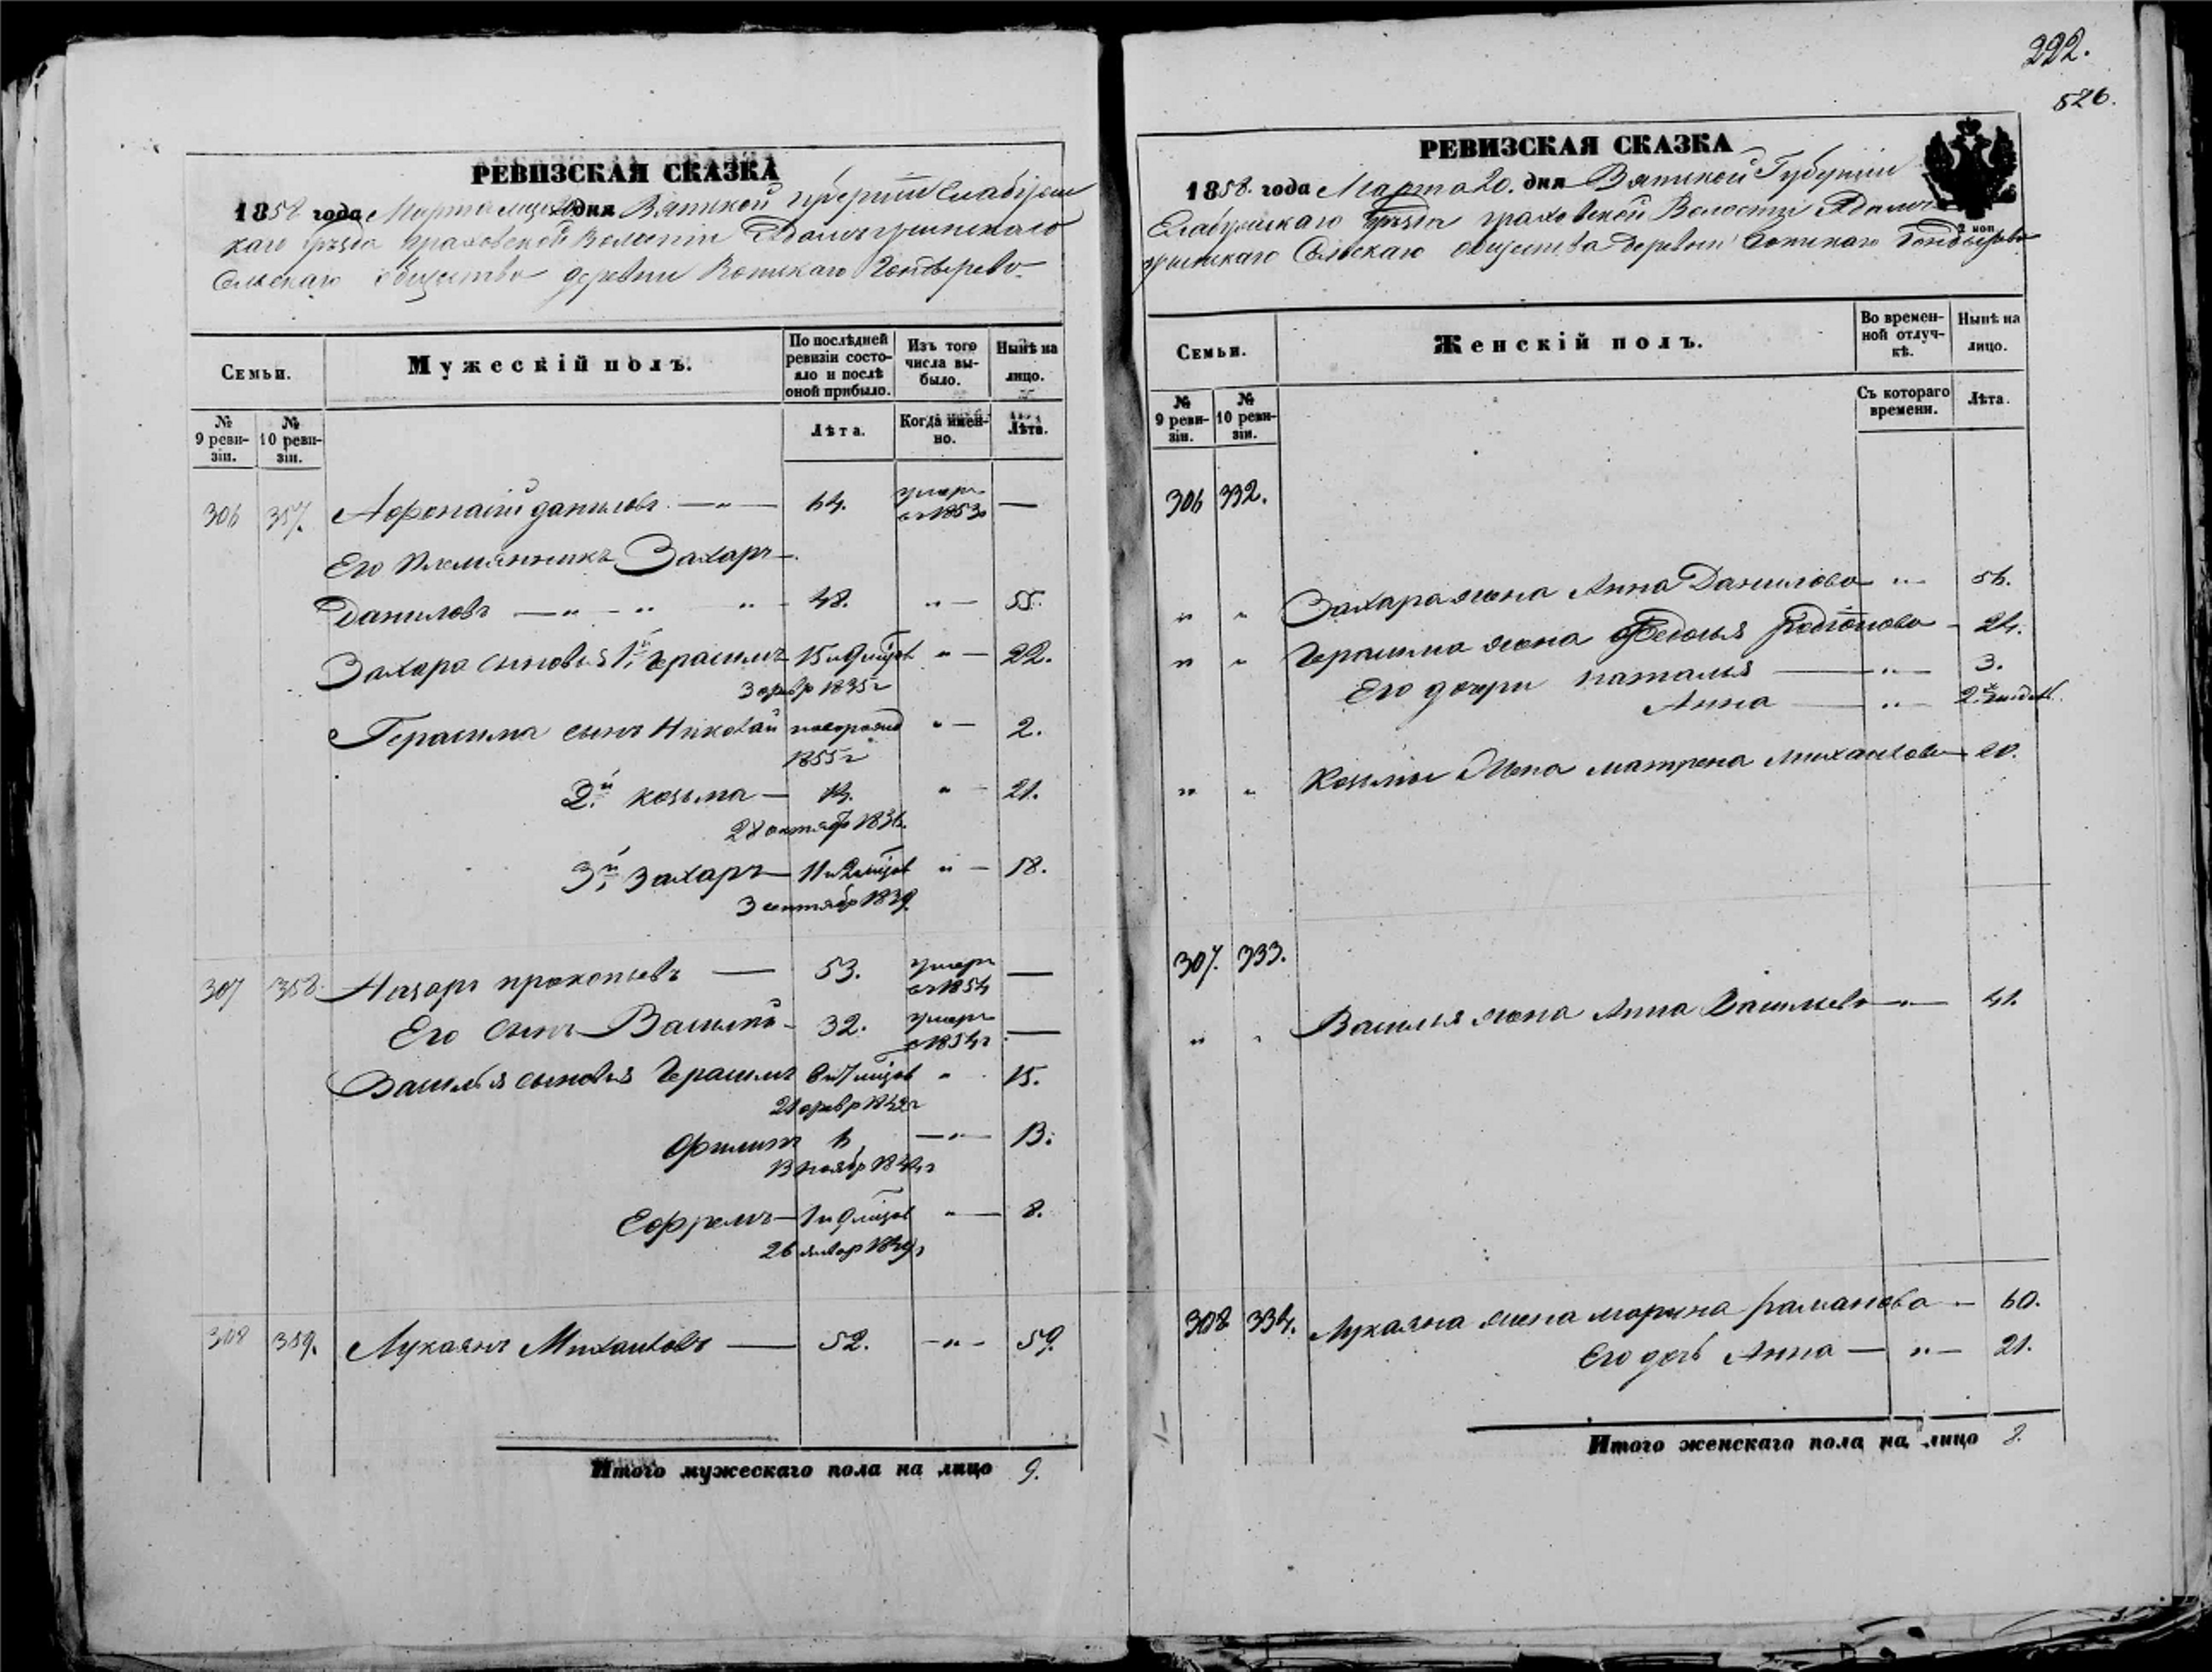 222.
526.
РЕВИЗСКАЯ СКАЗКА
1858 года Марта месяца 20 дня Вятской губерніи Елабужс
каго Уѣзда Граховской Волости
Сельскаго общества деревни Вотскаго Гондырево
Семьи.
Мужескій полъ.
По послѣдней ревизіи состояло и послѣ оной прибыло.
Изъ того числа выбыло.
Нынѣ на лицо.
№ 9 ревизіи.
№ 10 ревизіи.
Лѣта.
Когда именно.
Лѣта.
306 357. Афонасій Даниловъ — " — 64. умеръ въ 1853 —
Его племянникъ Захаръ —
Даниловъ — " — " " 48. " — 55.
Захара сыновья 1й Герасимъ 15 и 9 мѣсяц " — 22.
3 февр 1835 г
Герасима сынъ Николай новорожд " — 2.
1855 г
2й Козьма — 14. " — 21.
28 октябр 1836
3й Захаръ — 11 и 2 мѣсяц " — 18.
3 сентябр 1839
307 358. Назаръ Прокопьевъ — 53. умеръ въ 1854 —
Его сынъ Василій 32. умеръ въ 1854 г —
Василья сыновья Герасимъ 8 и 7 мѣсяцов " 15.
21 февр 1842 г
Филипъ 6 — " — 13.
13 ноябр 1844 г
Ефремъ — 1 и 9 мѣсяцов " — 8.
26 январ 1849 г
308 359. Лукаянъ Михайловъ — 52. — " — 59.
Итого мужескаго пола на лицо 9.
РЕВИЗСКАЯ СКАЗКА
1858 года Марта 20. дня Вятской Губерніи
Елабужскаго Уѣзда Граховской Волости
Сельскаго общества деревни Вотскаго Гондырево
2 коп
Семьи.
Женскій полъ.
Во временной отлучкѣ.
Нынѣ на лицо.
№ 9 ревизіи.
№ 10 ревизіи.
Съ котораго времени.
Лѣта.
306 332.
" " Захара жена Анна Данилова " — 56.
" " Герасима жена Федосья Родіонова — 24.
Его дочери Наталья — " — 3.
Анна — " — 2х недел.
" " Козьмы жена Матрена Михайлова — 20.
307. 333.
" " Василья жена Анна Васильева — " — 41.
308 334. Лукаяна жена Марина Романова — 60.
Его дочь Анна — " — 21.
Итого женскаго пола на лицо 8.